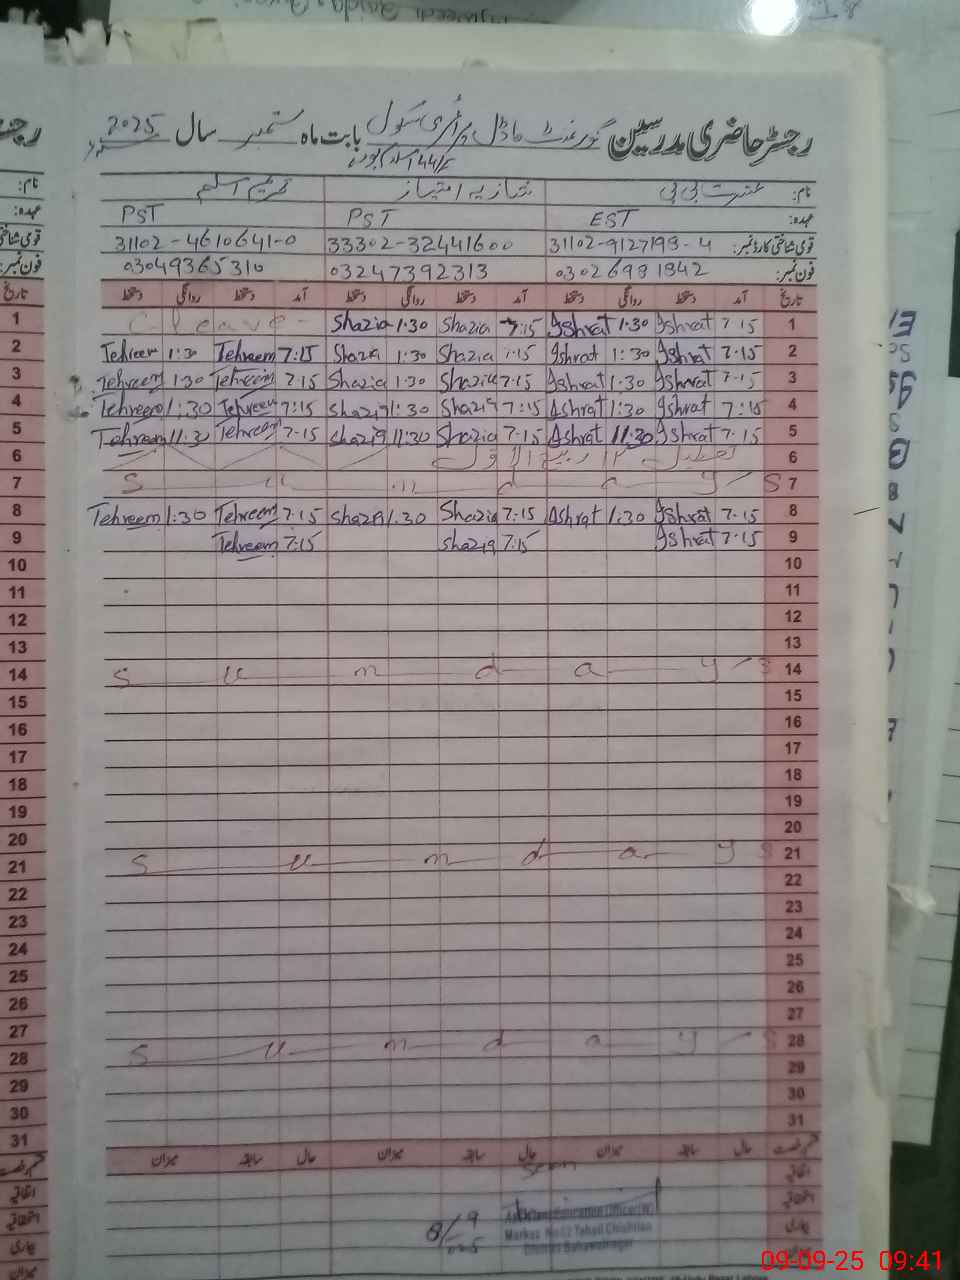 رجسٹر حاضری مدرسین گورنمنٹ ماڈل پرائمری سکول بابت ماہ ستمبر سال 2025
نام: عشرت بی بی شازیہ امتیاز تحریم اسلم
عہدہ: EST PST PST
قومی شناختی کارڈ نمبر: 31102-9127193-4 33302-32441600 31102-4610641-0
فون نمبر: 03026981342 03247392313 03049365310
تاریخ آمد دستخط روانگی دستخط آمد دستخط روانگی دستخط آمد دستخط روانگی دستخط تاریخ
1 C-leave- Shazia 1:30 Shazia 7:15 Ishrat 1:30 Ishrat 7.15 1
2 Tehreem 1:30 Tehreem 7:15 Shazia 1:30 Shazia 7:15 Ishrat 1:30 Ishrat 7.15 2
3 Tehreem 1:30 Tehreem 7.15 Shazia 1:30 Shazia 7.15 Ishrat 1:30 Ishrat 7.15 3
4 Tehreem 1:30 Tehreem 7:15 Shazia 1:30 Shazia 7:15 Ishrat 1:30 Ishrat 7:15 4
5 Tehreem 11:30 Tehreem 7.15 Shazia 11:30 Shazia 7.15 Ishrat 11:30 Ishrat 7.15 5
6 تعطیل 12 ربیع الاول 6
7 S u n d a y S 7
8 Tehreem 1:30 Tehreem 7.15 Shazia 1:30 Shazia 7:15 Ishrat 1:30 Ishrat 7.15 8
9 Tehreem 7:15 Shazia 7:15 Ishrat 7.15 9
10 10
11 11
12 12
13 13
14 S u n d a y S 14
15 15
16 16
17 17
18 18
19 19
20 20
21 S u n d a y S 21
22 22
23 23
24 24
25 25
26 26
27 27
28 S u n d a y S 28
29 29
30 30
31 31
حال سابقہ میزان حال سابقہ میزان حال سابقہ میزان
Seen
اتفاقیہ
Assistant Education Officer (W)
Markaz No.02 Tehsil Chishtian
District Bahawalnagar
8/9
025
بیماری
میزان
09-09-25 09:41